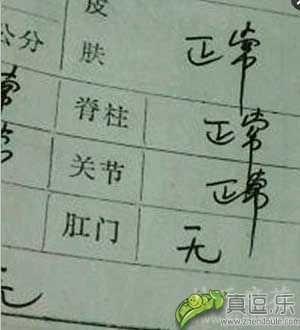 皮
公分 肤 正常
常 脊柱 正常
常 关节 正常
肛门 无
无
真逗.乐
www.zhendoule.com